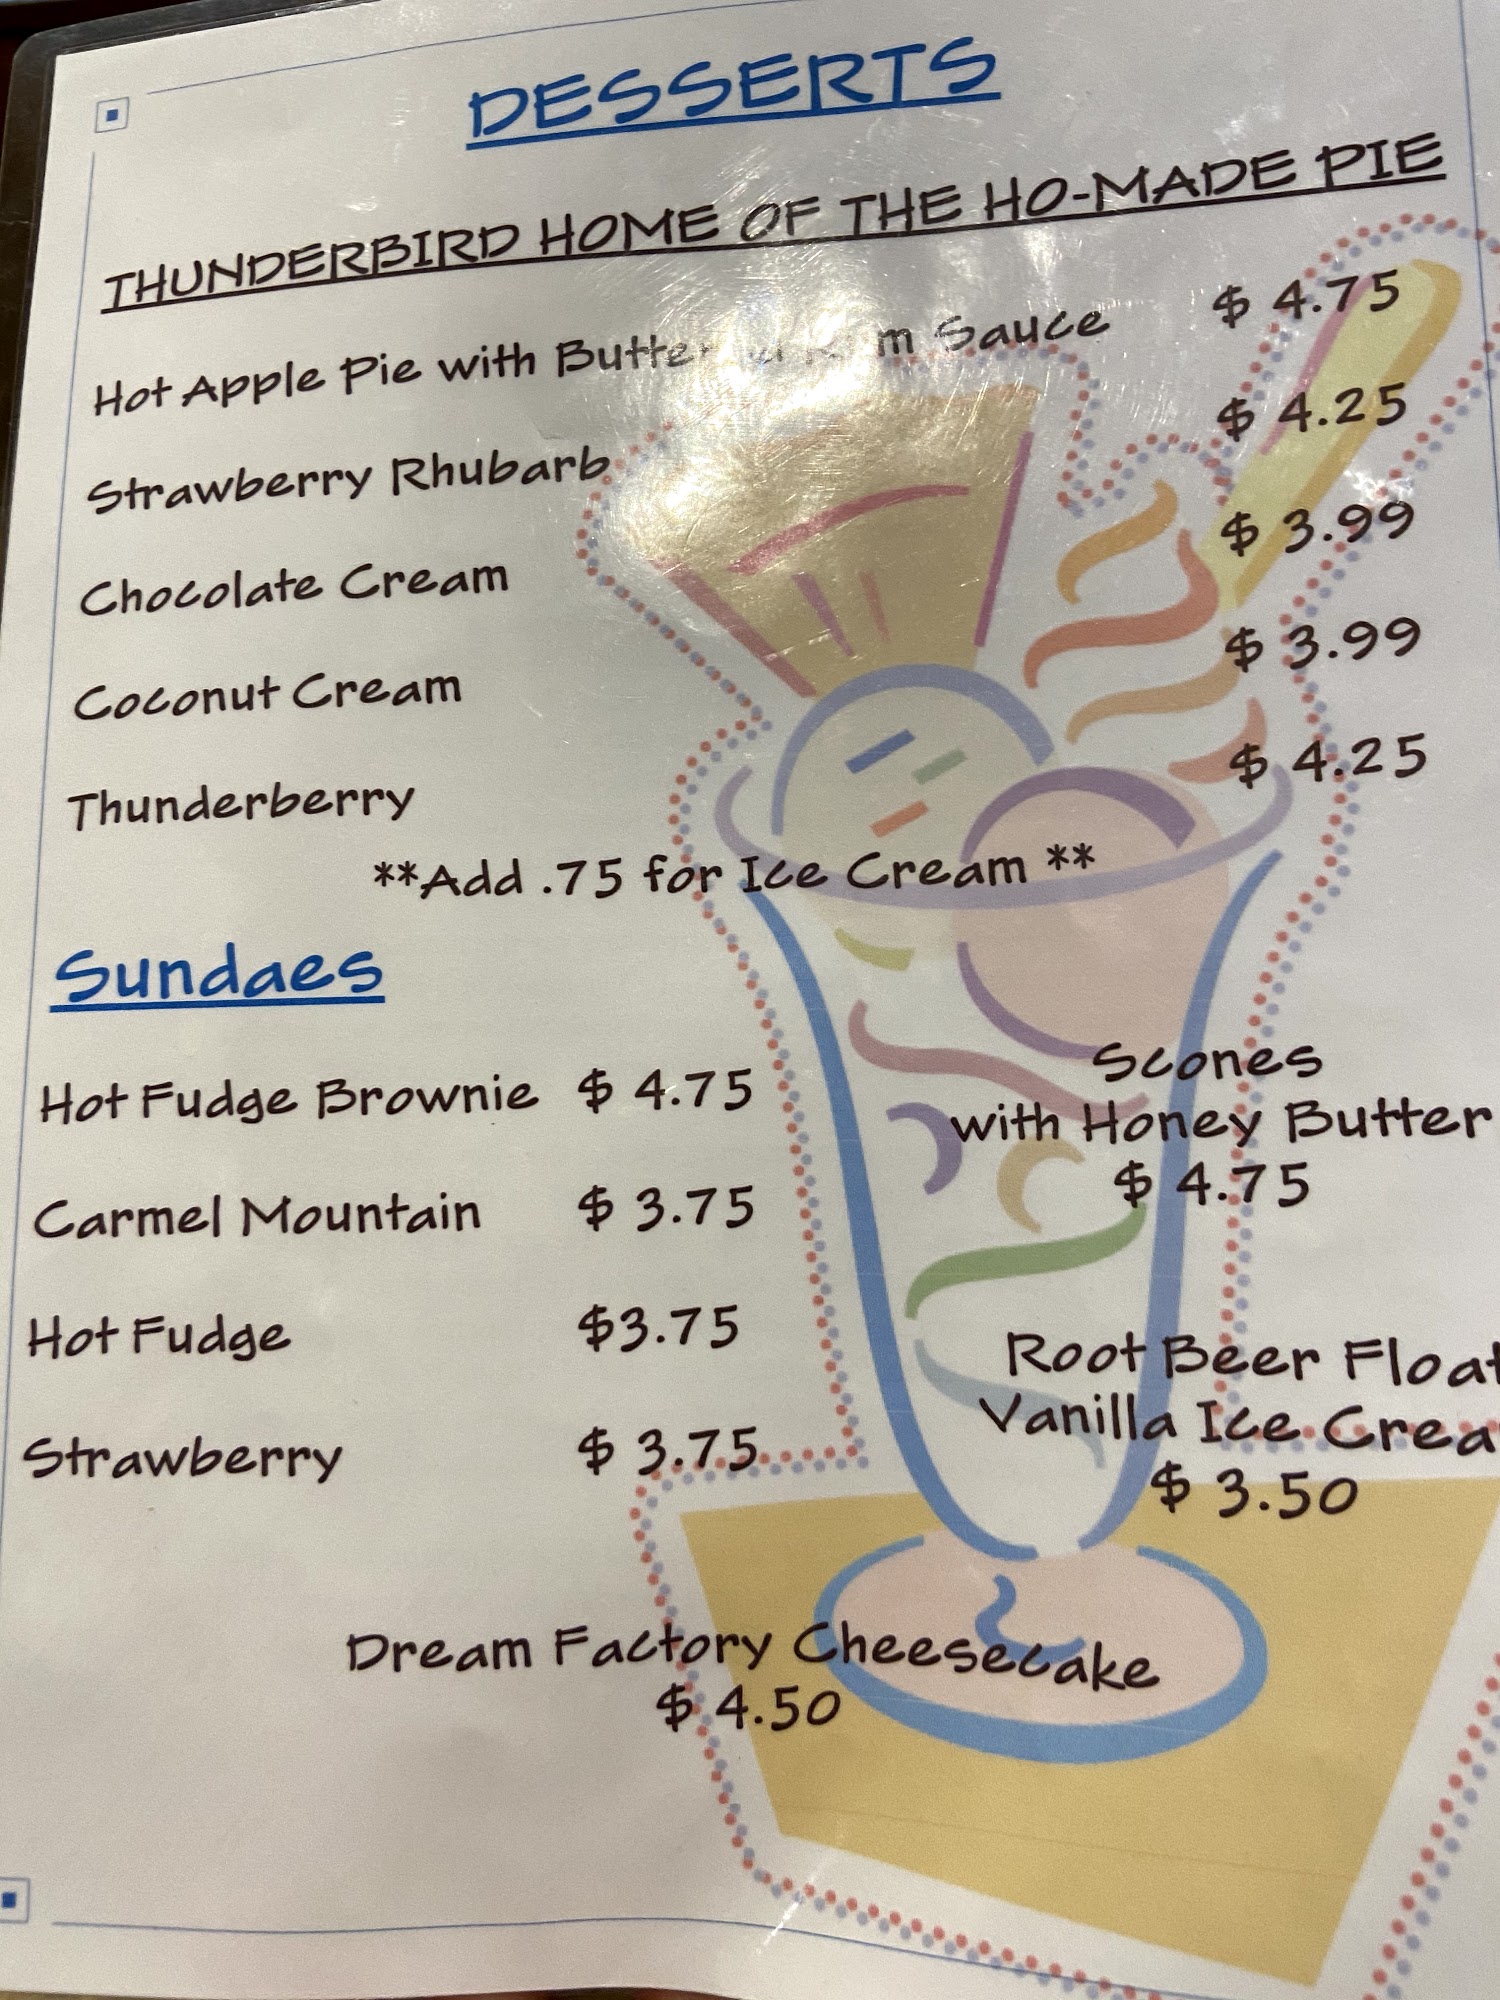 DESSERTS
THUNDERBIRD HOME OF THE HO-MADE PIE
Hot Apple Pie with Sauce $ 4.75
Strawberry Rhubarb $ 4.25
Chocolate Cream $ 3.99
Coconut Cream $ 3.99
Thunderberry $ 4.25
**Add .75 for Ice Cream **
Sundaes
Hot Fudge Brownie $ 4.75
Carmel Mountain $ 3.75
Hot Fudge $3.75
Strawberry $ 3.75
Scones
with Honey Butter
$ 4.75
Root Beer Float
Vanilla Ice Crea
$ 3.50
Dream Factory Cheesecake
$ 4.50